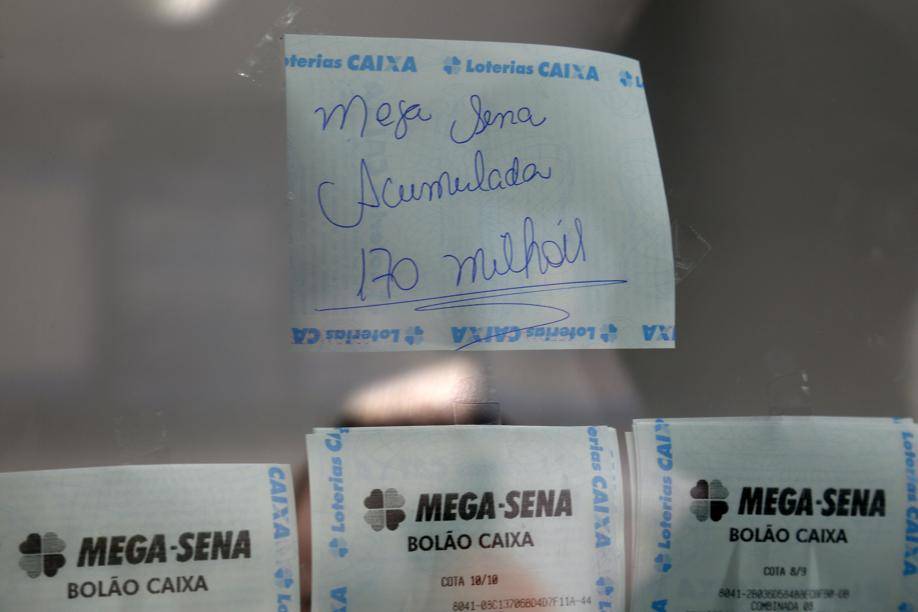 Loterias CAIXA Loterias CAIXA
Mega Sena
Acumulada
170 milhões
Loterias CAIXA Loterias CA
CAIXA
MEGA-SENA
BOLÃO CAIXA
Loterias CAIXA
MEGA-SENA
BOLÃO CAIXA
COTA 10/10
Loterias CAIXA
Loterias CAIXA
MEGA-SENA
BOLÃO CAIXA
COTA 8/9
COMBINADA 08
Loterias